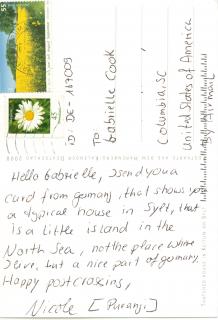 55
45
ID: DE-117009
TO
Gabrielle Cook
Columbia, SC
United States of America
Airmail
Hello Gabrielle, I send you a
card from germany, that shows you
a typical house in Sylt, that
is a little island in the
North Sea, not the place where
I live, but a nice part of germany.
Happy postcrossing,
Nicole [Puranji]